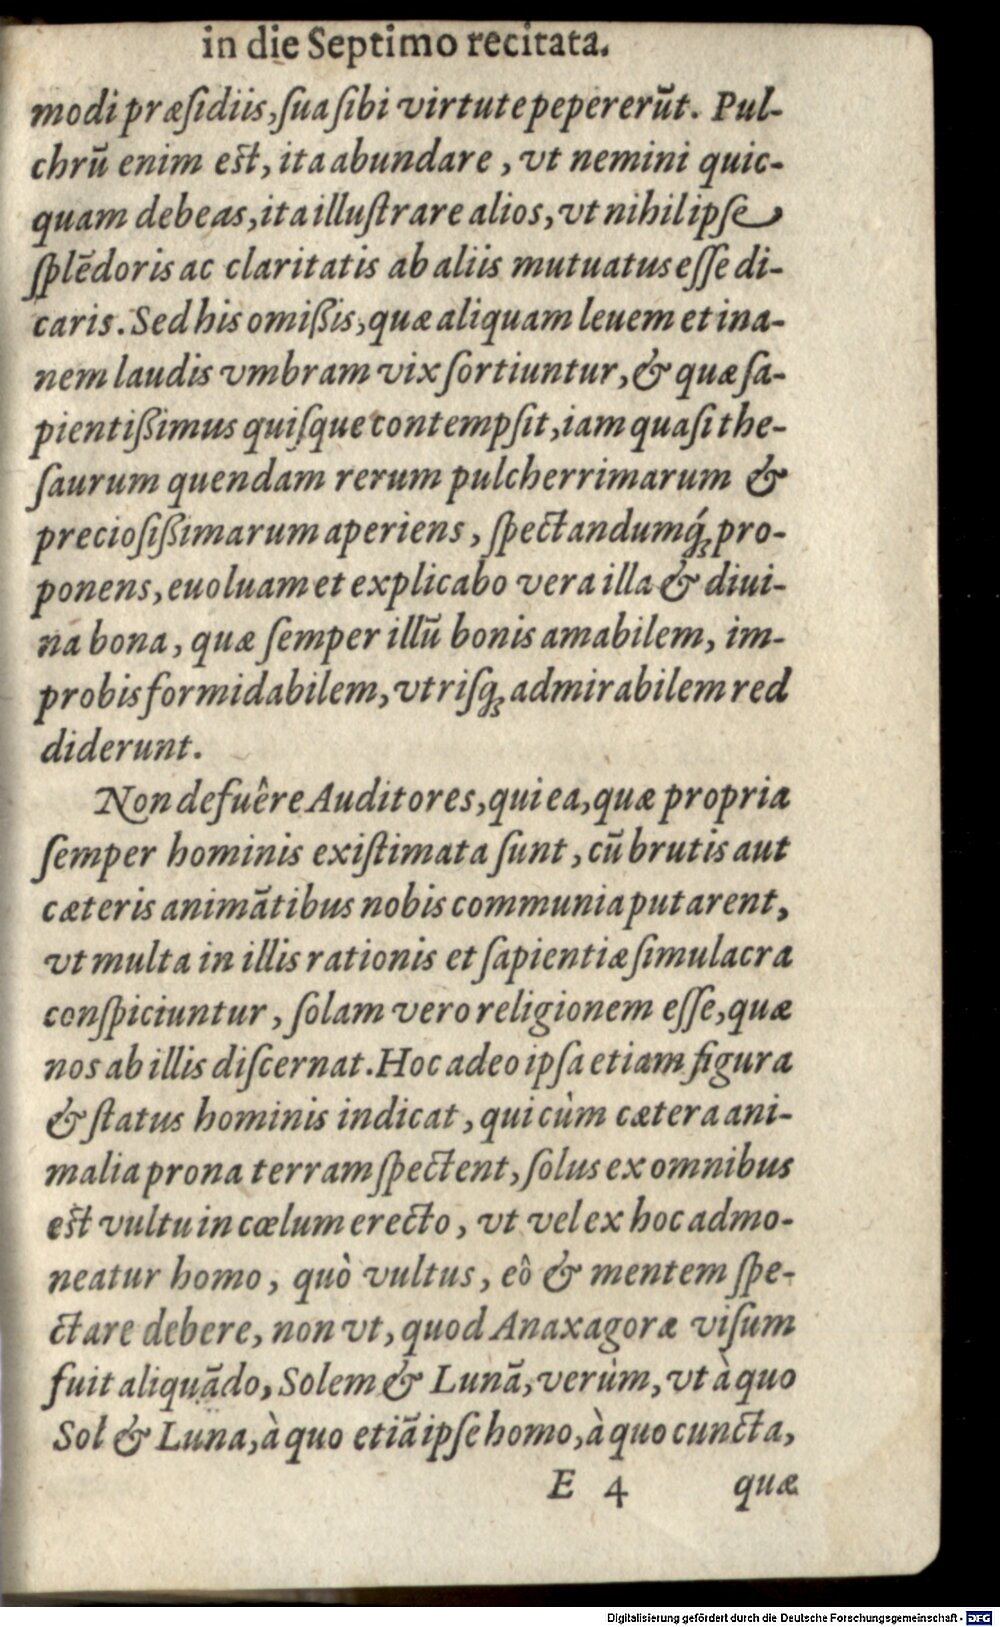 in die Septimo recitata.
modi præſidiis, ſua ſibi virtute pepererūt. Pul-
chrū enim est, ita abundare, vt nemini quic-
quam debeas, ita illuſtrare alios, vt nihil ipſe
ſplēdoris ac claritatis ab aliis mutuatus eſſe di-
caris. Sed his omißis, quæ aliquam leuem et ina-
nem laudis vmbram vix ſortiuntur, & quæ ſa-
pientißimus quiſque contempſit, iam quaſi the-
ſaurum quendam rerum pulcherrimarum &
precioſißimarum aperiens, ſpectandumq́ꝫ pro-
ponens, euoluam et explicabo vera illa & diui-
na bona, quæ ſemper illū bonis amabilem, im-
probis formidabilem, vtriſqꝫ admirabilem red
diderunt.
Non defuêre Auditores, qui ea, quæ propria
ſemper hominis exiſtimata ſunt, cū brutis aut
cæteris animātibus nobis communia putarent,
vt multa in illis rationis et ſapientiæ ſimulacra
conſpiciuntur, ſolam vero religionem eſſe, quæ
nos ab illis diſcernat. Hoc adeo ipſa etiam figura
& ſtatus hominis indicat, qui cùm cætera ani-
malia prona terram ſpectent, ſolus ex omnibus
est vultu in cœlum erecto, vt vel ex hoc admo-
neatur homo, quò vultus, eô & mentem ſpe-
ctare debere, non vt, quod Anaxagoræ viſum
fuit aliquādo, Solem & Lunā, verùm, vt à quo
Sol & Luna, à quo etiā ipſe homo, à quo cuncta,
E 4 quæ
Digitalisierung gefördert durch die Deutsche Forschungsgemeinschaft - DFG